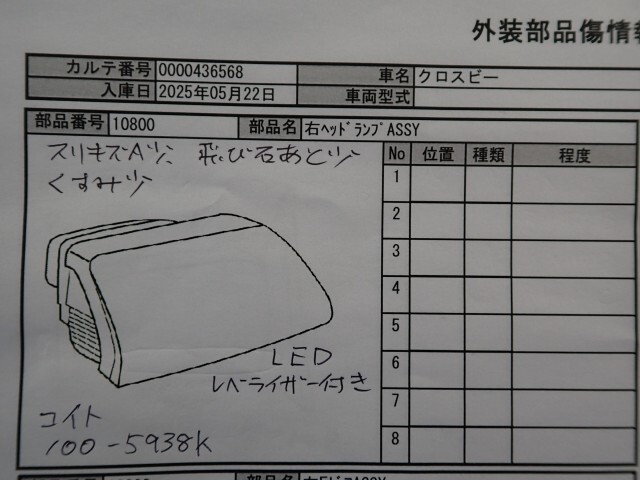 外装部品傷情報
カルテ番号 0000436568 車名 クロスビー
入庫日 2025年05月22日 車両型式
部品番号 10800 部品名 右ﾍｯﾄﾞﾗﾝﾌﾟASSY
スリキズAツ、飛び石あとツ
くすみツ
No 位置 種類 程度
1
2
3
4
5
6
7
8
LED
レベライザー付き
コイト
100-5938K